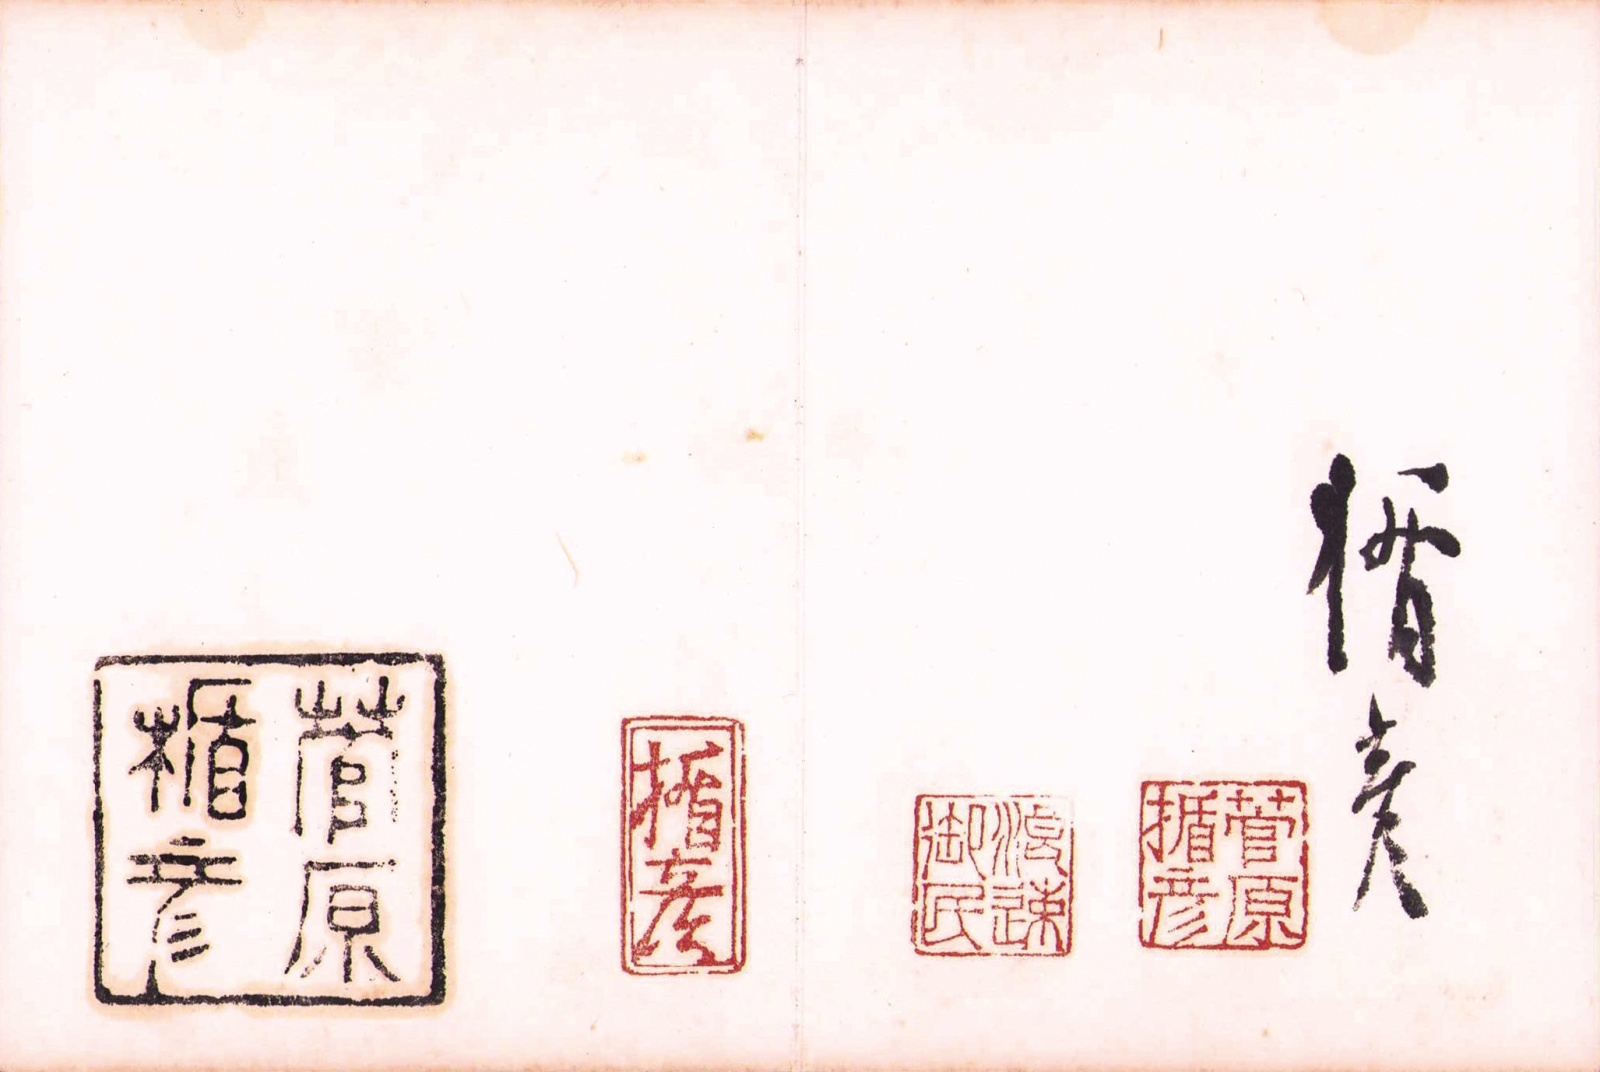 楯彦
菅原
楯彦
浪速
御民
楯彦
菅原
楯彦